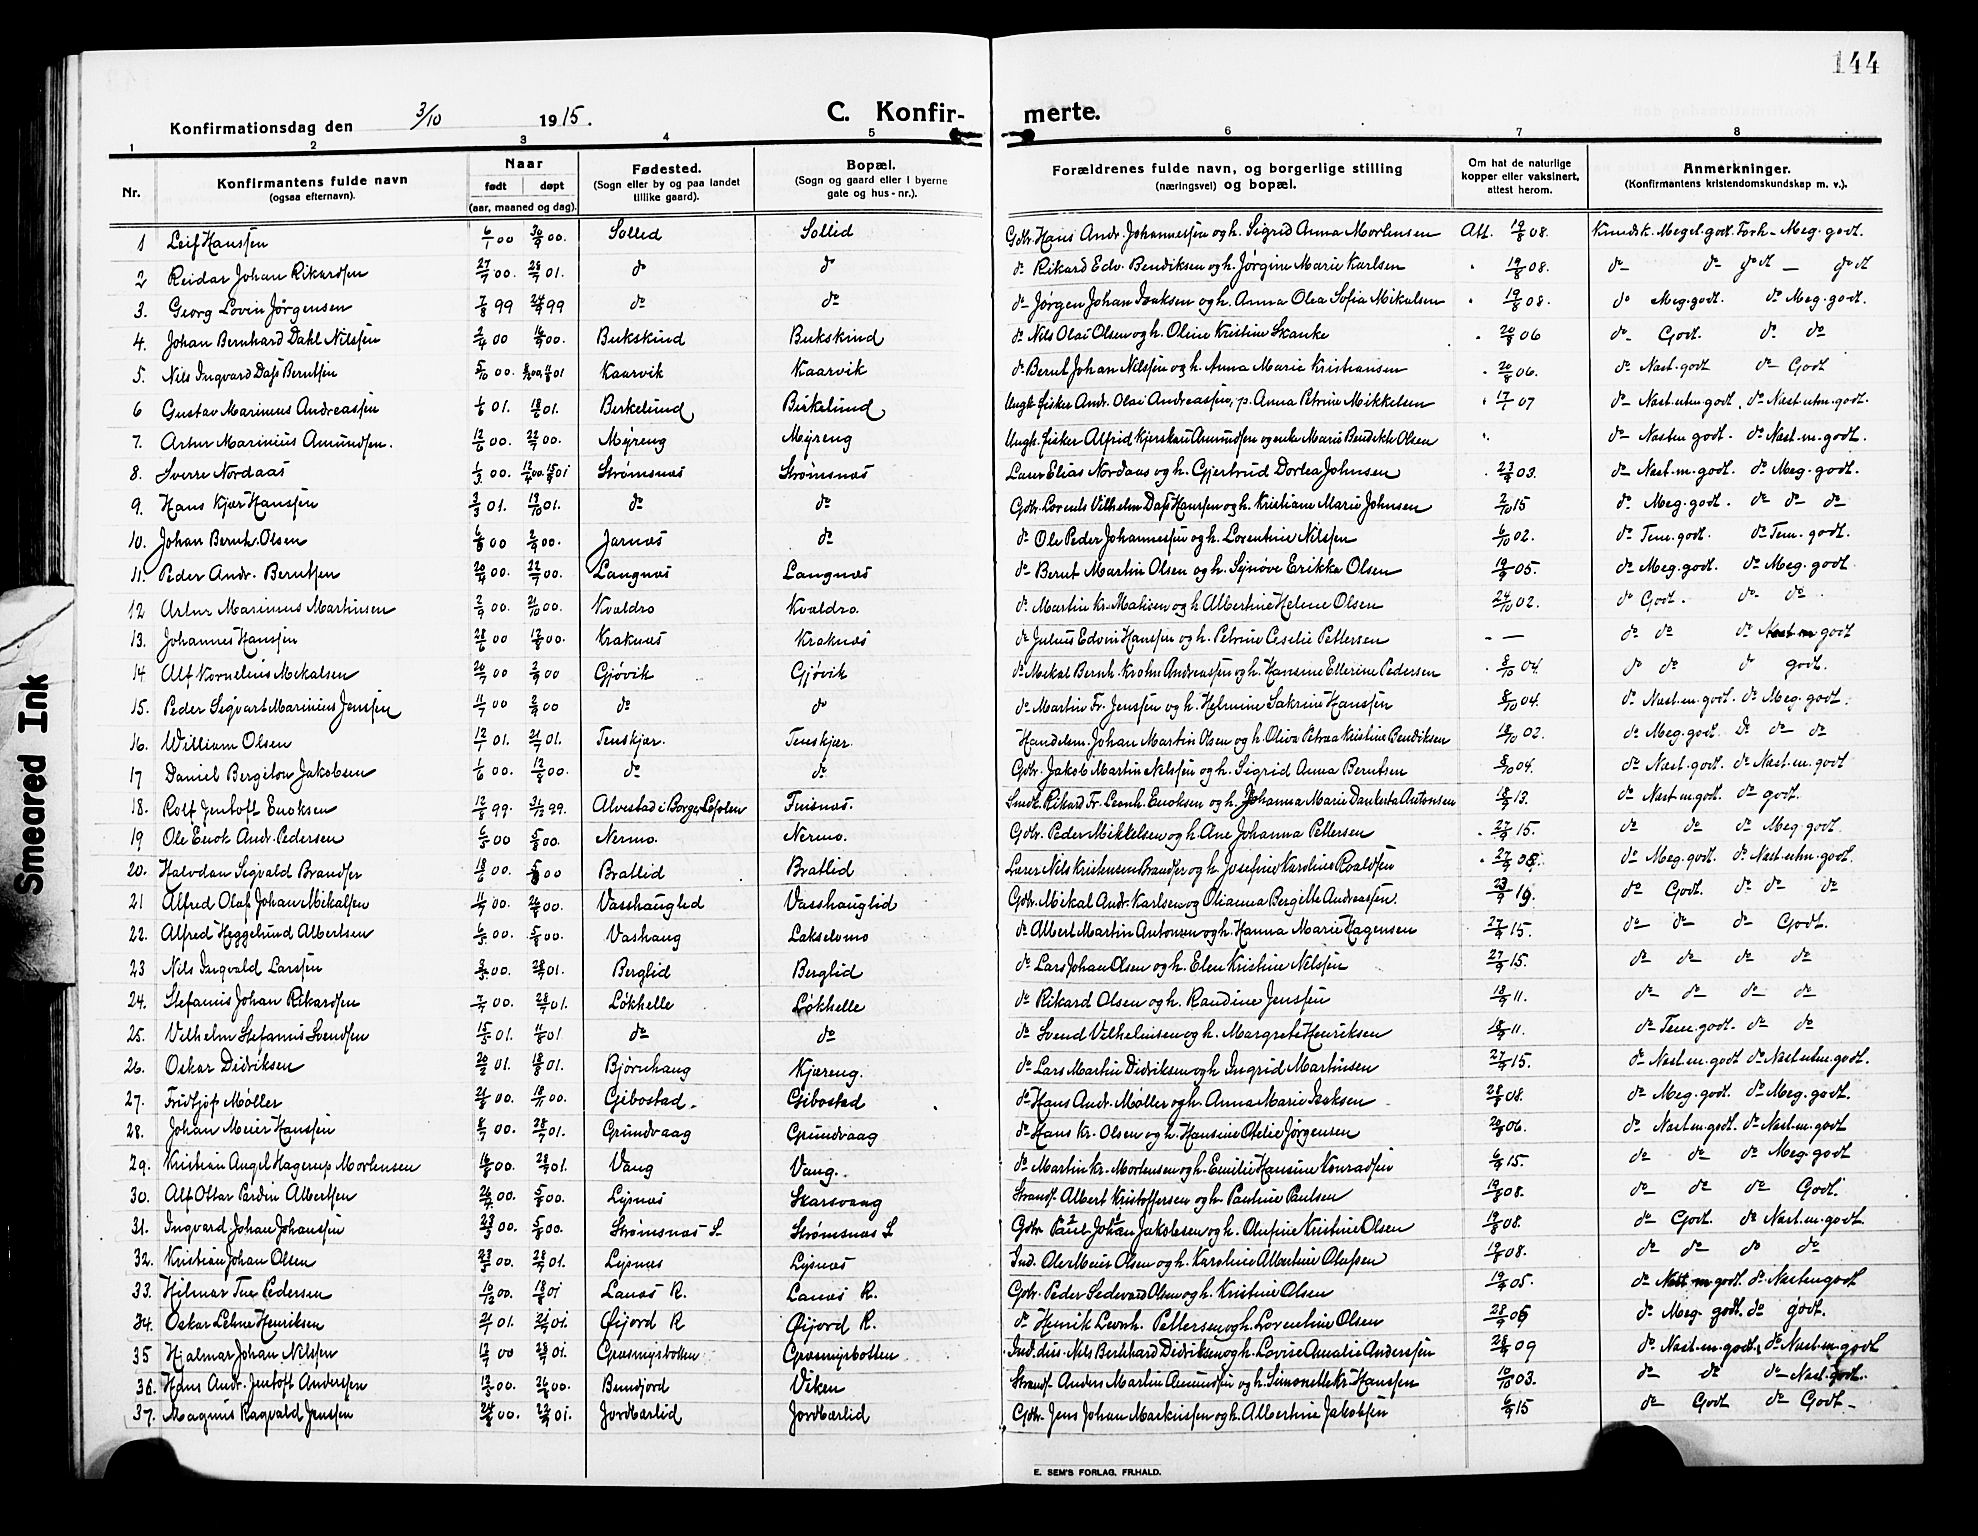 144
Konfirmationsdag den 3/10 1915.
C. Konfir- merte.
1 2 3 4 5 6 7 8
Nr. Konfirmantens fulde navn (ogsaa efternavn). Naar født døpt (aar, maaned og dag). Fødested. (Sogn eller by og paa landet tillike gaard). Bopæl. (Sogn og gaard eller i byerne gate og hus-nr.). Forældrenes fulde navn, og borgerlige stilling (næringsvei) og bopæl. Om hat de naturlige kopper eller vaksinert, attest herom. Anmerkninger. (Konfirmantens kristendomskundskap m. v.).
1 Leif Hanssen 6/1 00 30/9 00. Sollid Sollid Gdbr. Hans Andr. Johannessen og h. Sigrid Anna Mortensen Att. 19/8 08. Kundsk. Meget godt. Forh. Meg. godt.
2 Reidar Johan Rikardsen 27/7 00. 28/7 01. do do do Rikard Edv. Bendiksen og h. Jørgine Marie Karlsen 19/8 08. do do godt godt
3. Georg Lovin Jørgensen 7/8 99 24/9 99 do do do Jørgen Johan Isaksen og h. Anna Olea Sofia Mikalsen 19/8 08. do Meg. godt. do Meg. godt.
4. Johan Bernhard Dahl Nilssen 2/4 00 16/9 00. Bukskind Bukskind do Nils Olai Olsen og h. Oline Kristine Skanke 20/8 06 do Godt. do do
5. Nils Ingvard Dass Berntsen 5/10 00. Kaarvik Kaarvik do Bernt Johan Nilssen og h. Anna Marie Kristiansen 20/8 06. do Nast. godt do Godt
6 Gustav Marinius Andreassen 1/6 01. 18/6 01. Birkelund Birkelund Ungk. fisker Andr. Olai Andreassen, p. Anna Petrine Mikkelsen 17/7 07 do Nast. utm. godt. do Nast. utm. godt.
7. Artur Marinius Amundsen. 12/6 00. 22/7 00. Myreng Myreng Ungk. fisker Alfrid Kjerskau Amundsen og enke Marie Bendikte Olsen do Nasten godt. do Nast. m. godt.
8. Sverre Nordaas 1/3 00. Strømsnæs Strømsnæs Lærer Elias Nordaas og h. Gjertrud Dorlea Johnsen 23/9 03. do Nast. m. godt. do Meg. godt.
9. Hans Kjær Hanssen 3/3 01. 13/10 01. do do Gdbr. Lorents Vilhelm Dass Hanssen og h. Kristiane Marie Johnsen 2/10 15 do Meg. godt. do do do
10. Johan Bernh. Olsen 6/8 00 2/9 00. Jarnæs do do Ole Peder Johannessen og h. Lorentine Nilssen 6/10 02. do Tem. godt. do Tem. godt.
11. Peder Andr. Berntsen 20/4 00. 22/7 00. Langnæs Langnæs do Bernt Martin Olsen og h. Synøve Erikke Olsen 19/9 05. do Meg. godt do Meg. godt
12 Artur Marinius Martinsen 2/9 00. 21/10 00. Kvaldro Kvaldro. do Martin Kr. Matisen og h Albertine Helene Olsen 24/10 02. do Godt. do do
13. Johannes Hanssen 28/6 00 12/8 00. Kraknæs Kraknæs do Julius Edvin Hanssen og h. Petrine Ceselie Pettersen - — do do do Nast m godt
14 Alf Kornelius Mekalsen 26/7 00 2/9 00 Gjøvik Gjøvik do Mekal Bernh. Krohn Andreassen og h. Hansine Ellerine Pedersen 8/10 04. do do do godt.
15. Peder Sigvart Marinius Jenssen 11/7 00 2/9 00 do do do Martin Fr. Jenssen og h. Helmine Sakrine Hanssen 8/10 04. do Nast. m. godt. do Meg. godt.
16. William Olsen 12/1 01. 21/7 01. Tenskjær. Tenskjær. Handelsm. Johan Martin Olsen og h Oliva Petraa Kristine Bendiksen 18/10 02. do Meg. godt. do do do
17 Daniel Bergiton Jakobsen 1/6 00. 12/8 00. do do Gdbr. Jakob Martin Nilssen og h. Sigrid Anna Berntsen 8/10 04. do Nast. godt. do Nast. m. godt
18. Rolf Jentoft Enoksen 12/8 99. 31/12 99. Alvestad i Borge, Lofoten Finsnæs. Smed. Rikard Fr. Leonh. Enoksen og h. Johanna Marie Dankerta Antonsen 18/9 13. do Nast. m. godt. do godt.
19 Ole Enok Andr. Pedersen 6/5 00 5/8 00. Nermo. Nermo. Gdbr. Peder Mikkelsen og h. Ane Johanna Pettersen 27/9 15. do do do Meg. godt.
20. Halvdan Sigvald Brandser 18/6 00. 5/8 00 Bratlid Bratlid Lærer Nils Kristensen Brandser og h. Josefine Karoline Roaldsen 27/9 08. do Meg. godt. do Nast. utm. godt.
21 Alfred Olaf Johan Mikalsen 11/7 00. 26/8 00. Vasshauglid Vasshauglid Gdbr. Mekal Andr. Karlsen og Olianna Bergette Andreassen. 23/9 19. do Godt. do do do
22. Alfred Heggelund Albertsen 6/5 00. 5/8 00. Vashaug Lakselvmo do Albert Martin Antonsen og h. Hanna Marie Hagensen 27/9 15. do do do Godt.
23 Nils Ingvald Larssen 3/5 00. 28/7 01. Berglid Berglid do Lars Johan Olsen og h. Elen Kristine Nilssen 27/9 15. do do do do
24. Stefanus Johan Rikardsen 7/7 00. 28/7 01. Løkhelle Løkhelle do Rikard Olsen og h. Randine Jenssen 18/9 11. do do do do
25. Vilhelm Stefanus Svendsen 15/5 01. 11/8 01 do do do Svend Vilhelmsen og h. Margrete Henriksen 18/9 11. do Tem. godt. do do
26. Oskar Didriksen 20/2 01. 18/8 01. Bjørnhaug Kjæreng. do Lars Martin Didriksen og h Ingrid Martinsen 27/9 15. do Nast. m. godt do Nast. utm. godt.
27. Fridtjof Møller 26/8 00. 18/11 00. Gibostad. Gibostad do Hans Andr. Møller og h. Anna Marie Isaksen 28/8 08. do Meg. godt. do Meg. godt.
28. Johan Meier Hanssen 8/7 00. 28/7 01. Grundvaag Grundvaag do Hans Kr. Olsen og h. Hansine Otelie Jørgensen 20/8 06. do Nast m. godt. do Nast. m. godt
29. Kristian Angel Hagerup Mortensen 16/8 00. 28/7 01. Vang Vang. do Martin Kr. Mortensen og h. Emilie Hansine Konradsen 6/9 15. do do do Meg. godt
30. Alf Ottar Pardin Albertsen 26/4 00. 5/8 00. Lysnæs Skarsvaag Strands. Albert Kristoffersen og h. Pauline Paulsen 19/8 08. do do do Godt.
31. Ingvard Johan Johanssen 23/3 00. 5/8 00. Strømsnæs L Strømsnæs L Gdbr. Paul Johan Jakobsen og h. Olufine Kristine Olsen 19/8 08. do Godt. do Nast. m. godt.
32. Kristian Johan Olsen 23/5 00. 28/7 01. Lysnæs Lysnæs Ind. Ole Meier Olsen og h. Karoline Albertine Olufsen 19/8 08. do do do do
33. Hilmar Tner Pedersen 10/12 00. 18/8 01 Lanæs R. Lanæs R. Gdbr. Peder Sedevard Olsen og h. Kristine Olsen 19/9 05. do Nast m godt. do Nasten godt
34. Oskar Lehne Henriksen 21/1 01. 21/7 01. Øijord R Øijord R. do Henrik Leonh. Pettersen og h. Lorentine Olsen 28/9 05 do Meg. godt. do godt.
35 Hjalmar Johan Nilssen 13/7 00 28/7 01. Græsmyrbotten Græsmyrbotten Ind. dis. Nils Bernhard Didriksen og h. Lovise Amalie Anderssen 28/9 09 do Nast. m. godt. do Nast. m. godt
36. Hans Andr. Jentoft Anderssen 12/5 00. 26/8 00. Bundjord Viken Strands. Anders Martin Amundsen og h. Simonette Kr. Hanssen 10/10 03. do do do Nast. godt.
37. Magnus Ragvald Jenssen 24/8 00. 22/9 01. Jordbærlid Jordbærlid Gdbr. Jens Johan Markussen og h. Albertine Jakobsen 6/9 15 do Godt do Godt
E. SEM'S FORLAG, FR.HALD.
Smeared Ink